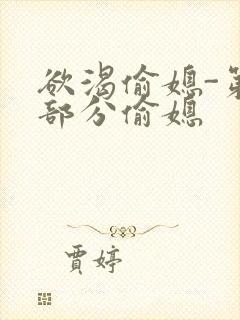 欲渴偷媳-第
部分偷媳
贾婷